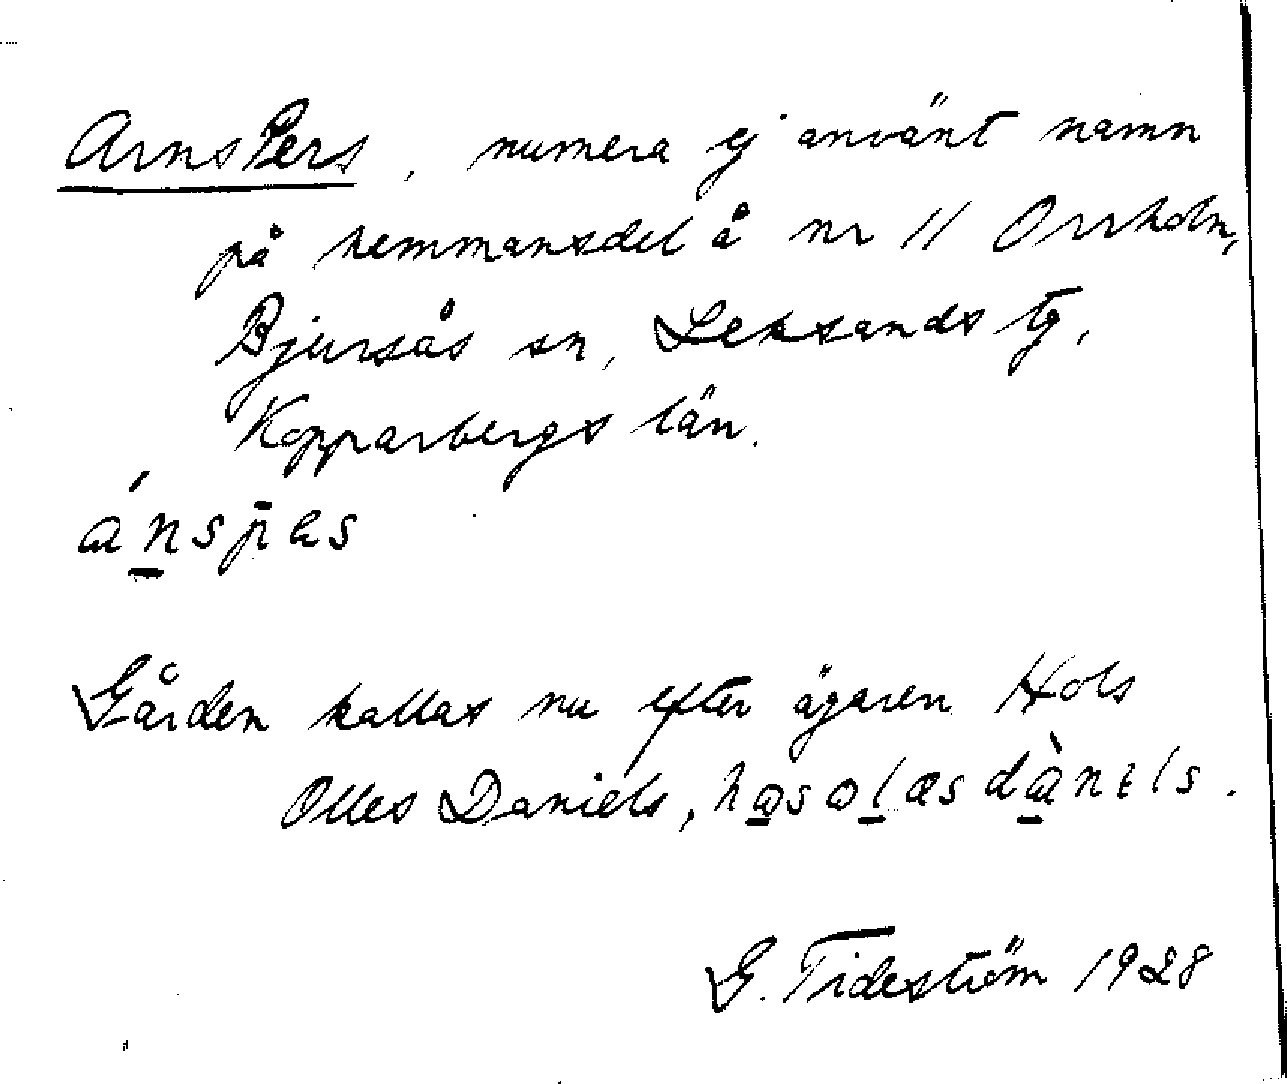 Arns Pers, numera ej använt namn
på hemmansdel å nr 11 Orrholn,
Bjursås sn, Leksands tg,
Kopparbergs län.
ánspæs
Gården kallas nu efter ägaren Hols
Olles Daniels, hosolæsdànɩls.
G. Tideström 1928